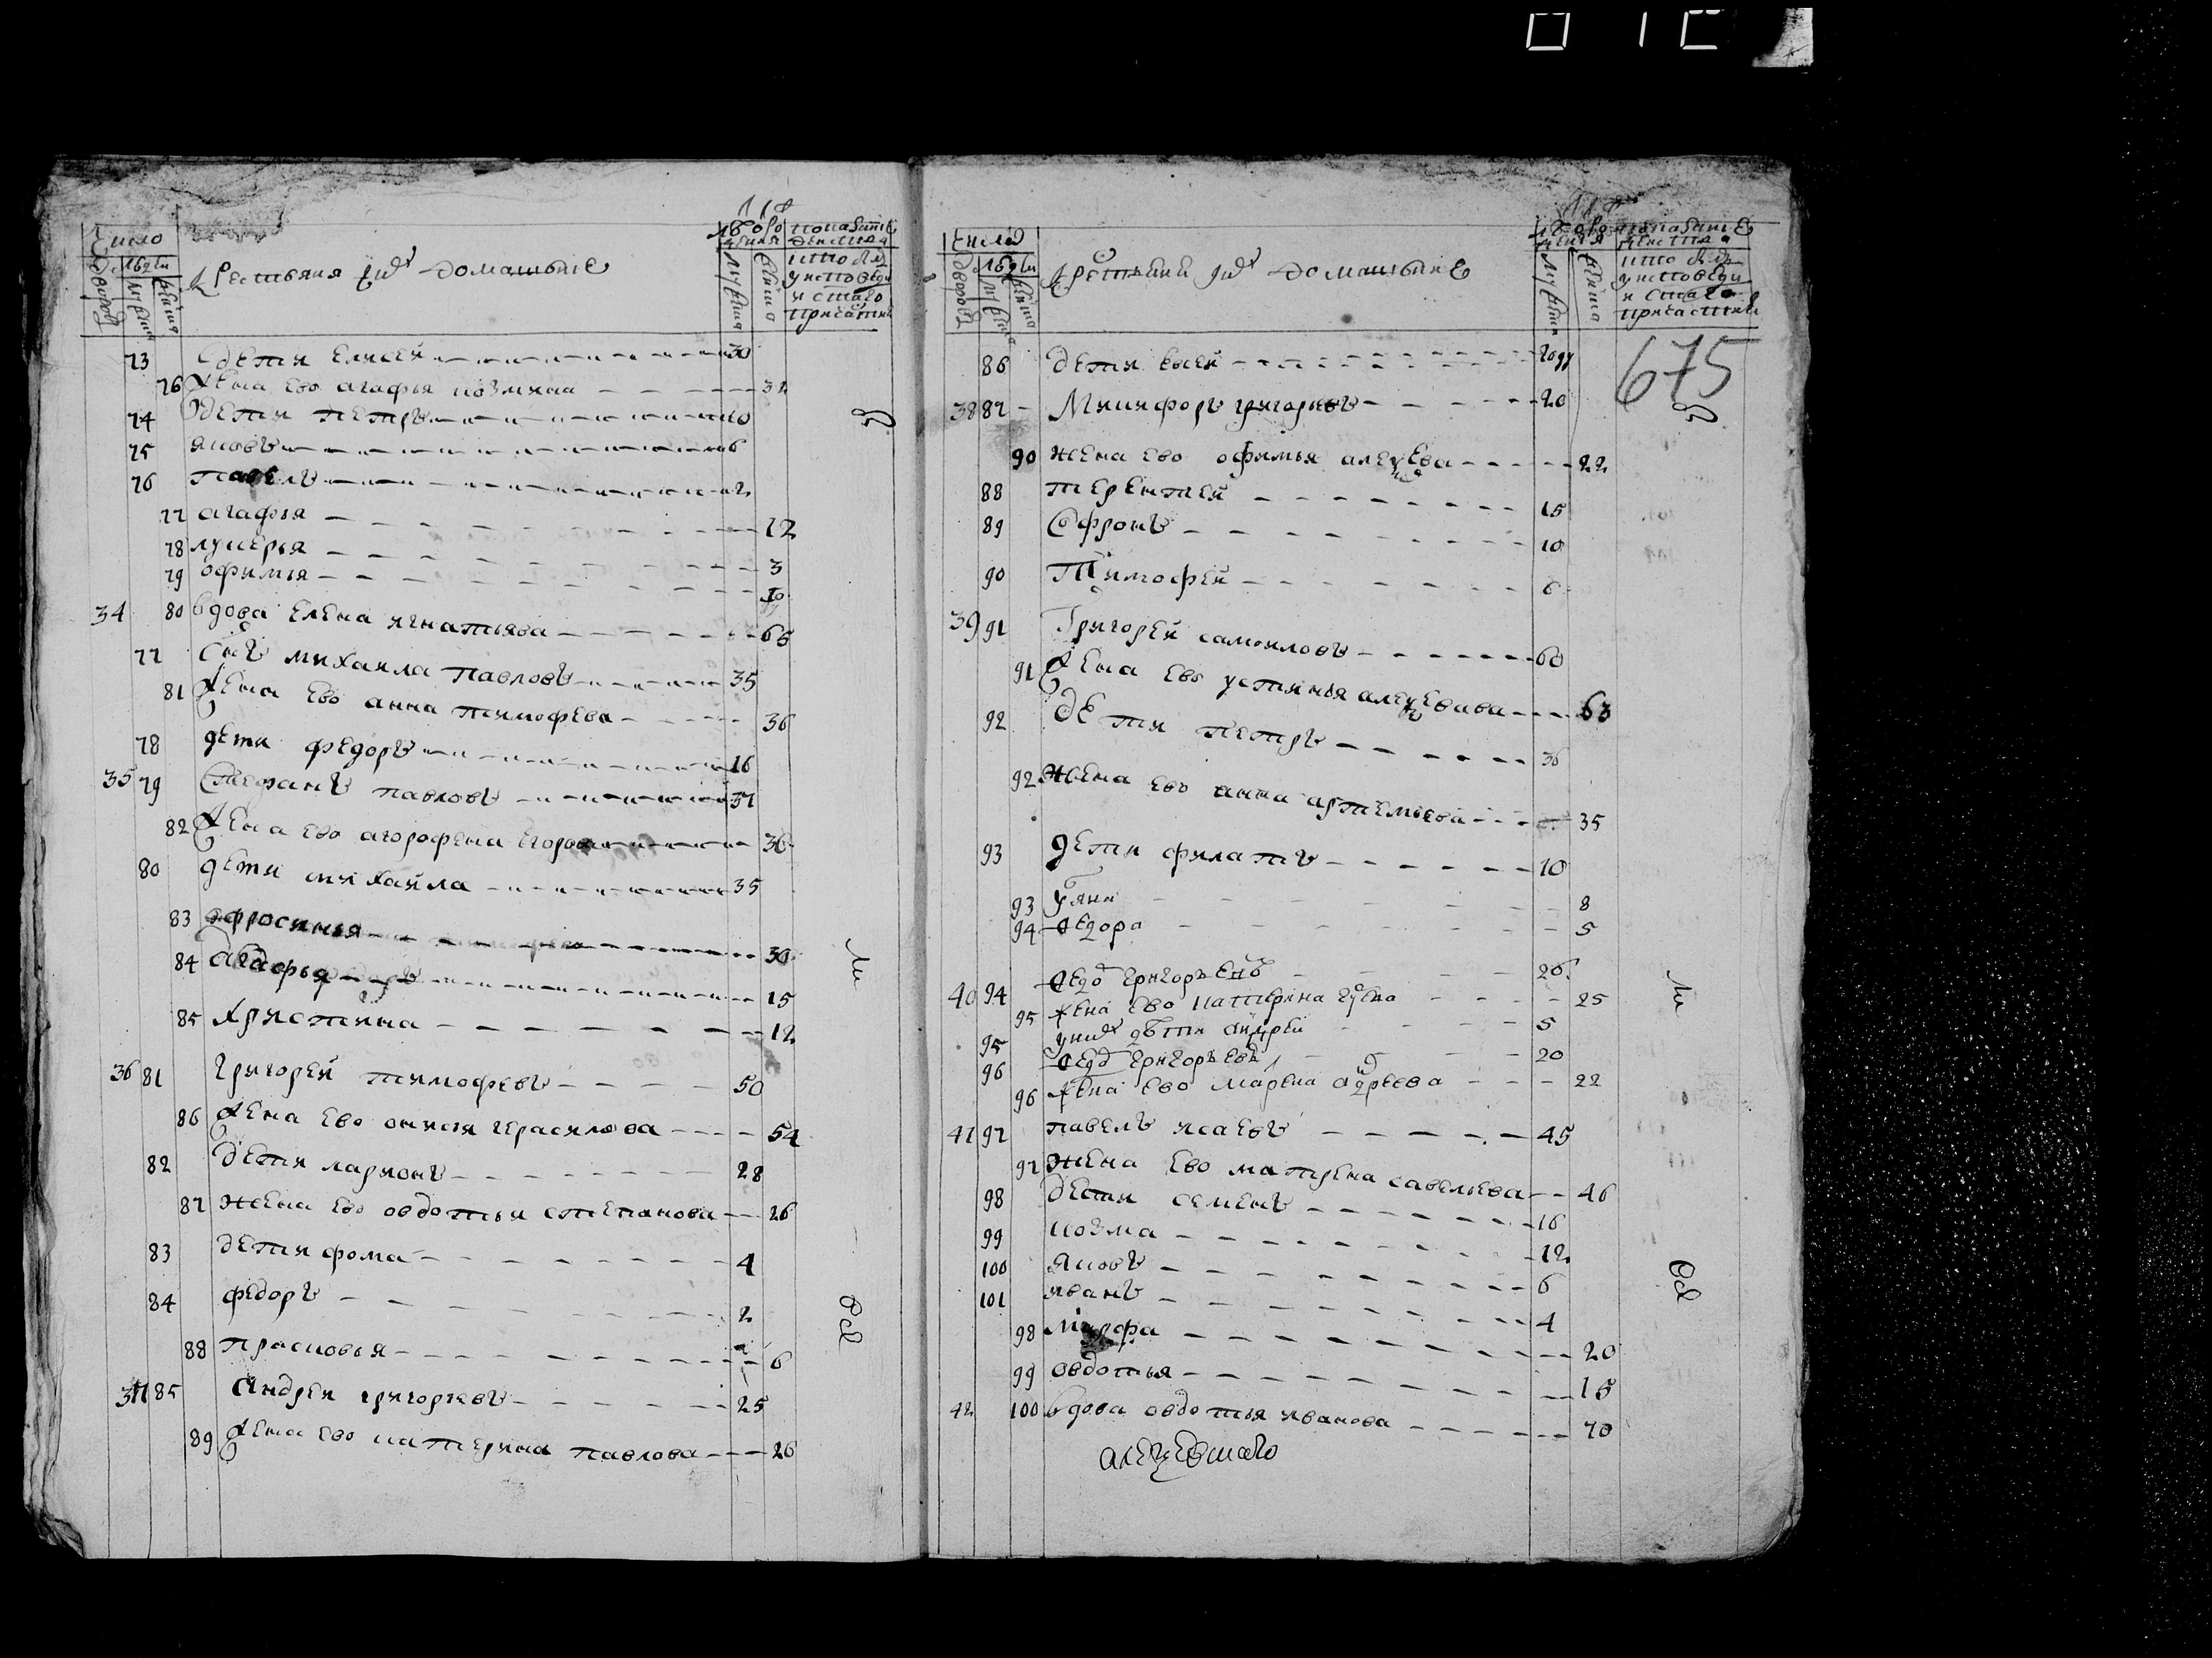 Число
Дворов
Людей
Мужеска
Женска
Крестьяня и их домашние
Показание действия кто был у исповеди и святаго причастия
73 дети Елисей 30
76 жена ево агафья козмина 32
74 дети петръ 10
75 яковъ 6
76 павелъ 2
77 агафья 12
78 лукерья 3
79 офимья
34 80 вдова Елена игнатьява 65
77 сынъ михаила павловъ 35
81 жена Ево анна тимофева 36
78 дети федоръ 16
35 79 Стефанъ павловъ 37
82 жена ево агрофена Егорова 36
80 дети михайла 35
83 офросинья 30
84 агафья 15
85 христина 12
36 81 григорей тимофевъ 50
86 жена Ево Герасилова 54
82 дети ларионъ 28
87 жена Ево овдотья степанова 26
83 дети фома 4
84 федоръ 2
88 прасковья 6
37 85 андрей григорьевъ 25
89 жена ево катерина павлова 26
Число
Дворов
Людей
Мужеска
Женска
Крестьяни и их домашние
Показание действия кто был у исповеди и святаго причастия
675
86 дети Евсей году
38 87 Никифоръ григорьевъ 20
90 жена ево офимья алексеева 22
88 терентей 15
89 Софронъ 10
90 Тимофей 6
39 91 Григорей самоиловъ 60
91 жена Ево устинья 63
92 дети петръ 36
92 жена Ево анна артемьева 35
93 дети филатъ 10
93 уяни 8
94 федора 5
40 94 федо григорьевъ 26
95 жена Ево катерина 25
95 у них дети андрей 5
96 федо григорьевъ 20
96 жена Ево Марена андреева 22
41 97 павелъ исаевъ 45
97 жена Ево матрена савельева 46
98 дети семенъ 16
99 козма 12
100 яковъ 6
101 иванъ 4
98 марфа 20
99 овдотья 15
42 100 вдова овдотья иванова 70